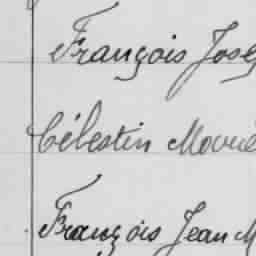 François Jose
Célestin Marie
François Jean M